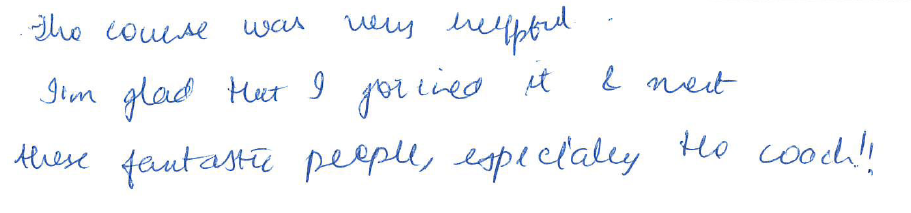 The course was very helpful.
I'm glad that I joined it & meet
these fantastic people, especially the coach!!